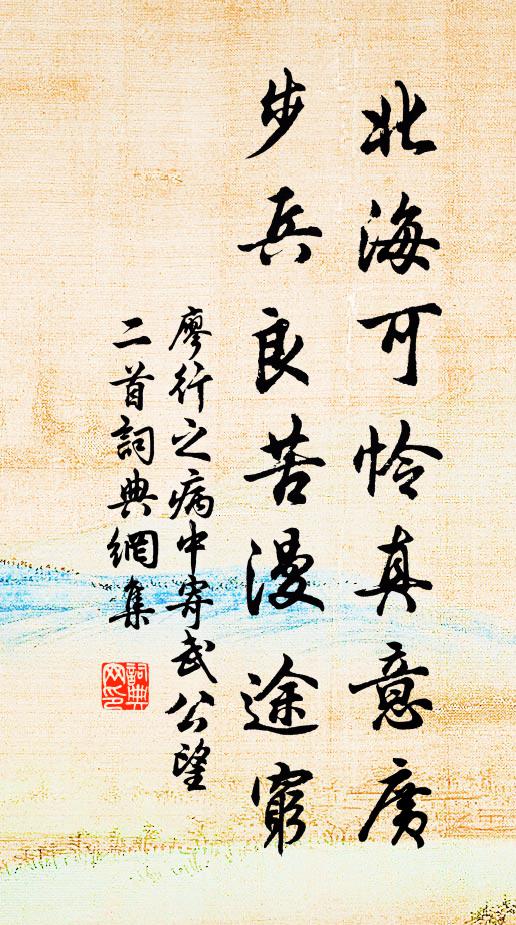 北海可怜真意广
步兵良苦漫途穷
廖行之病中寄武公望
二首詞典網集
詞典網印